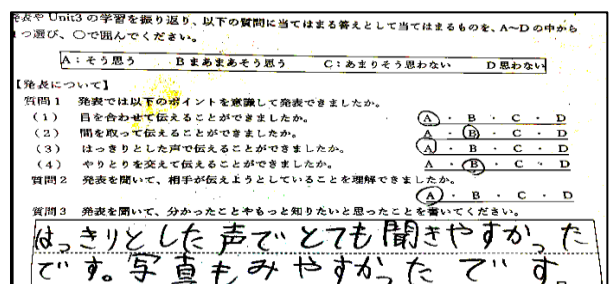 発表や Unit3 の学習を振り返り、以下の質問に当てはまる答えとして当てはまるものを、A~D の中から
1つ選び、○で囲んでください。
A:そう思う B まあまあそう思う C:あまりそう思わない D 思わない
【発表について】
質問1 発表では以下のポイントを意識して発表できましたか。
(1) 目を合わせて伝えることができました。 A ・ B ・ C ・ D
(2) 間を取って伝えることができました。 A ・ B ・ C ・ D
(3) はっきりとした声で伝えることができました。 A ・ B ・ C ・ D
(4) やりとりを交えて伝えることができました。 A ・ B ・ C ・ D
質問2 発表を聞いて、相手が伝えようとしていることを理解できましたか。
A ・ B ・ C ・ D
質問3 発表を聞いて、分かったことやもっと知りたいと思ったことを書いてください。
はっきりとした声でとても聞きやすかった
です。写真もみやすかったです。